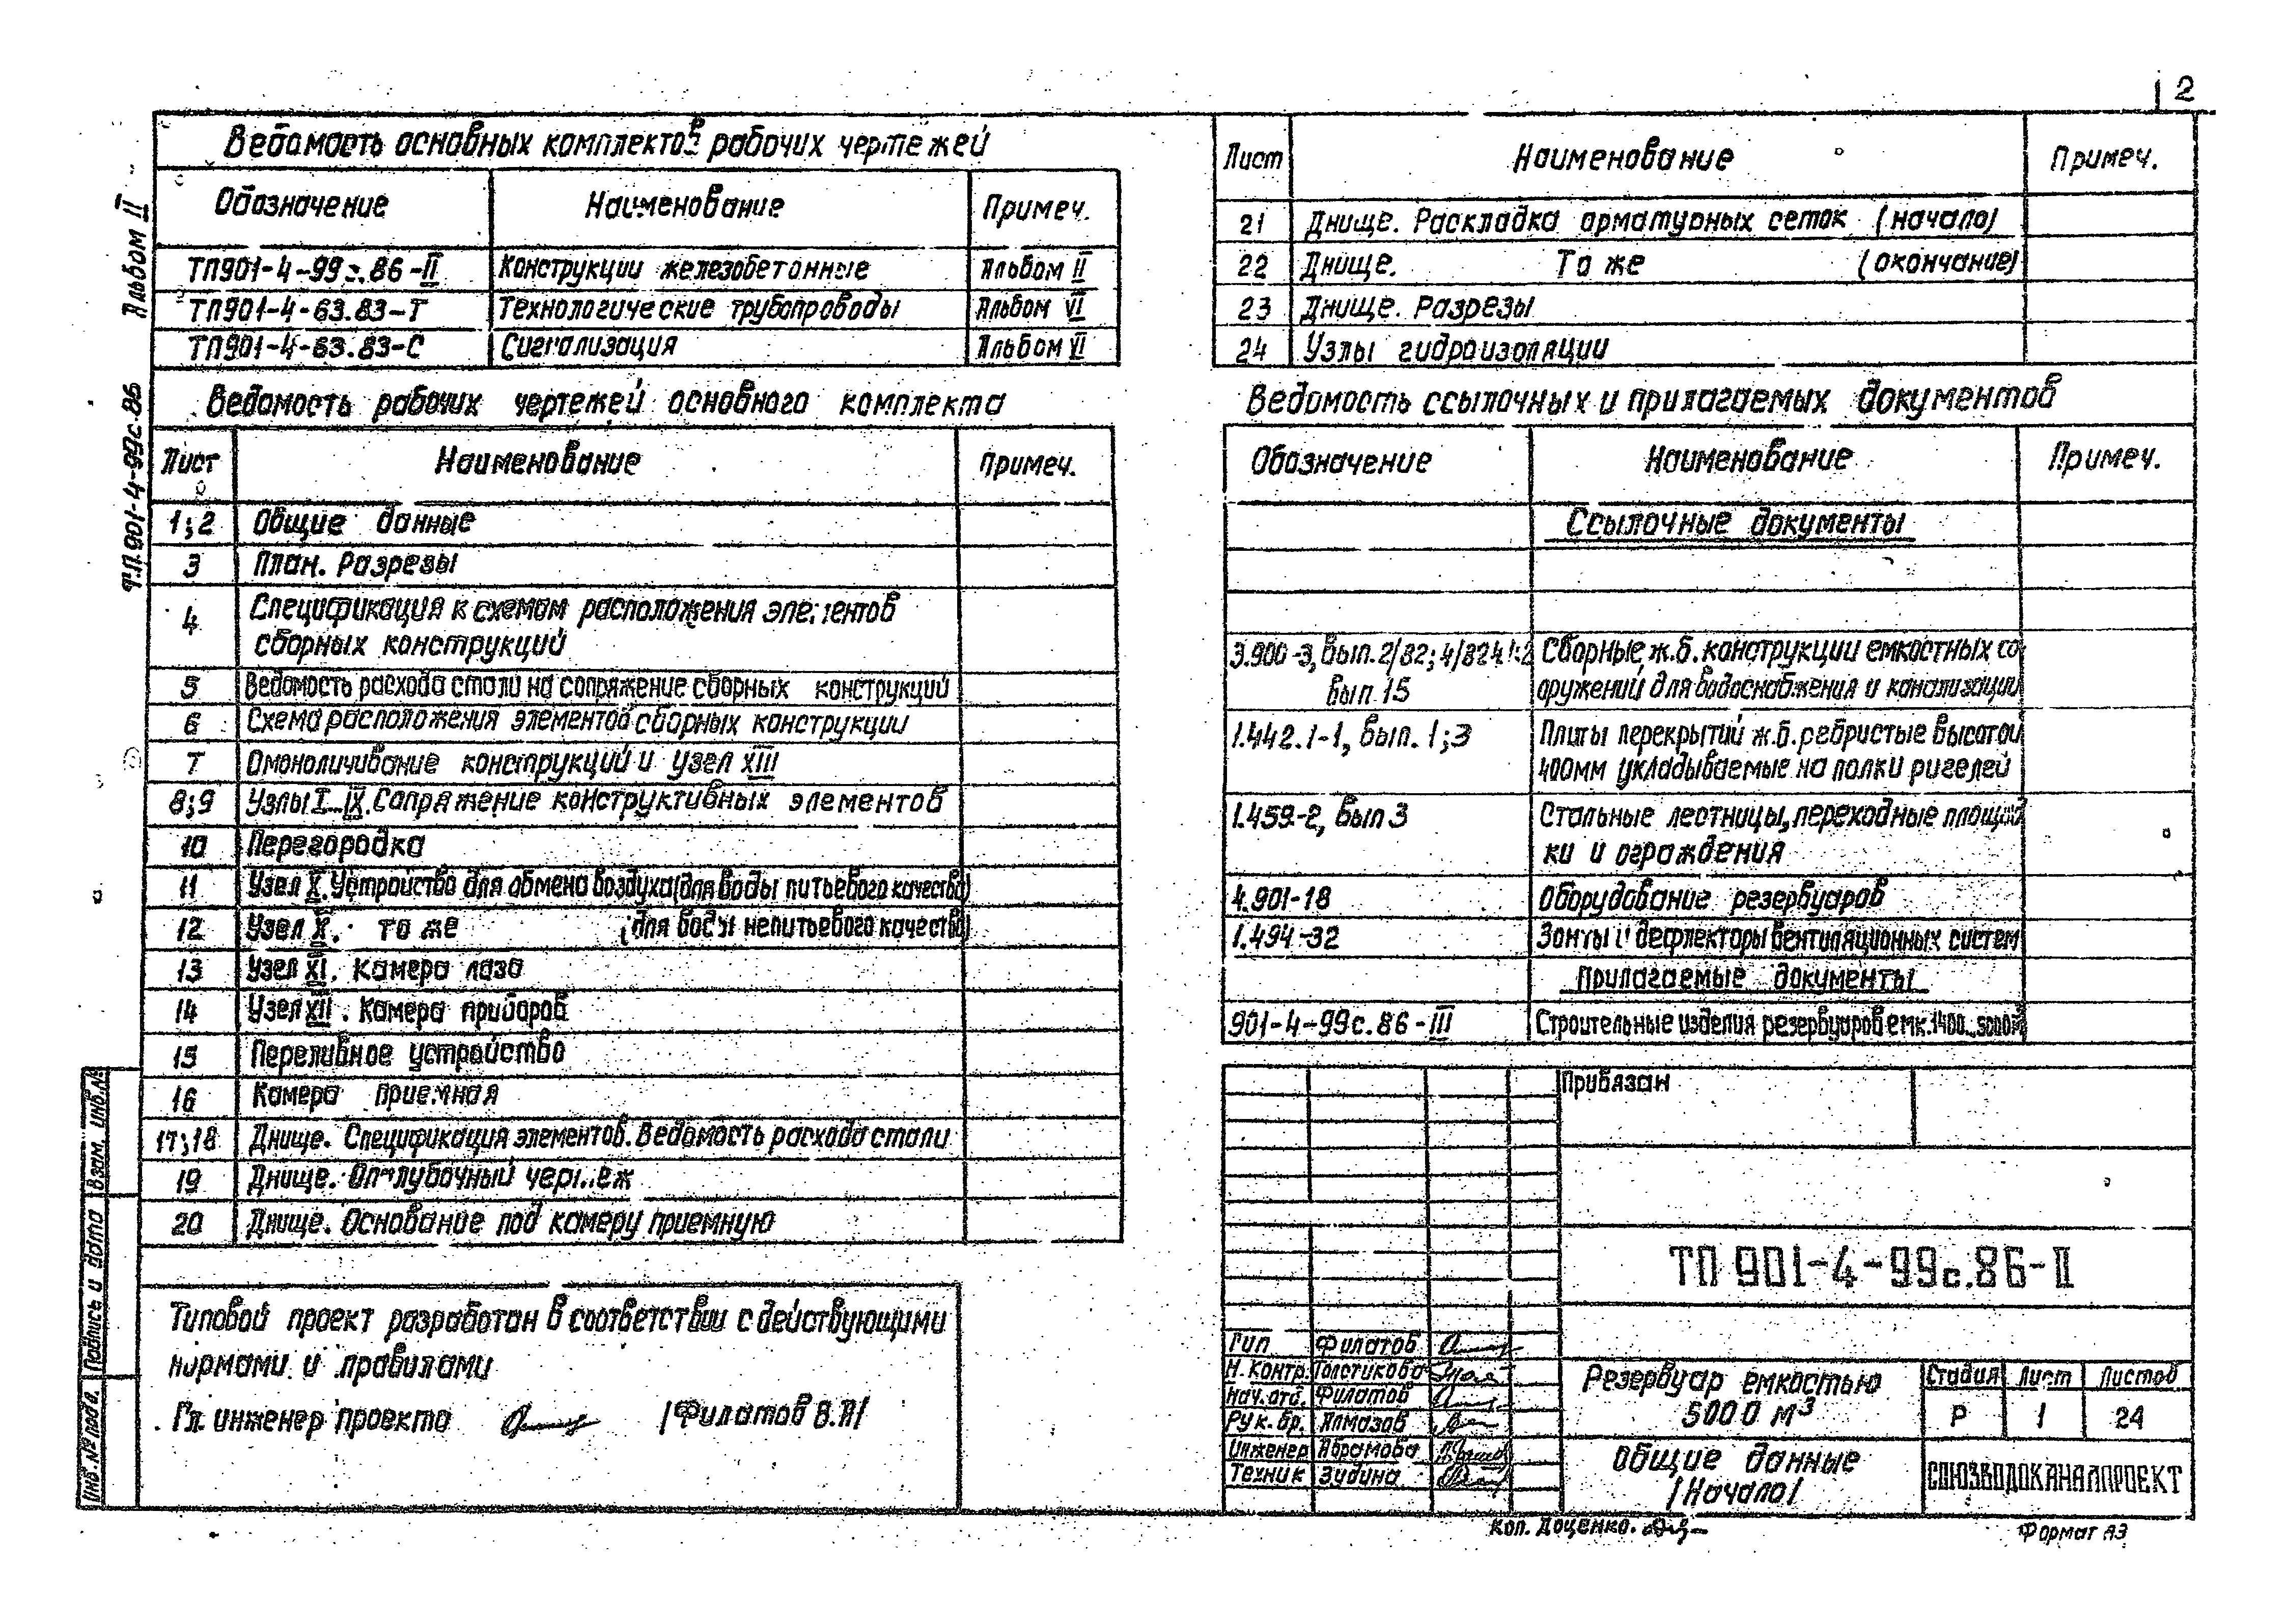 2
Альбом II
Т.П.901-4-99с.86
Ведомость основных комплектов рабочих чертежей
Обозначение Наименование Примеч.
ТП901-4-99с.86-II Конструкции железобетонные Альбом II
ТП901-4-63.83-Т Технологические трубопроводы Альбом VI
ТП901-4-63.83-С Сигнализация Альбом VI
Ведомость рабочих чертежей основного комплекта
Лист Наименование Примеч.
1;2 Общие данные
3 План. Разрезы
4 Спецификация к схемам расположения элементов
сборных конструкций
5 Ведомость расхода стали на сопряжение сборных конструкций
6 Схема расположения элементов сборных конструкции
7 Омоноличивание конструкций и узел XIII
8;9 Узлы I-IX. Сопряжение конструктивных элементов
10 Перегородка
11 Узел X. Устройство для обмена воздуха (для воды питьевого качества)
12 Узел X. то же (для воды непитьевого качества)
13 Узел XI. Камера лаза
14 Узел XII. Камера приборов
15 Переливное устройство
16 Камера приемная
17;18 Днище. Спецификация элементов. Ведомость расхода стали
19 Днище. Опалубочный чертеж
20 Днище. Основание под камеру приемную
Типовой проект разработан в соответствии с действующими
нормами и правилами
Гл. инженер проекта /Филатов В.А/
Взам. инв.№
Подпись и дата
Инв.№ подл.
Лист Наименование Примеч.
21 Днище. Раскладка арматурных сеток (начало)
22 Днище. То же (окончание)
23 Днище. Разрезы
24 Узлы гидроизоляции
Ведомость ссылочных и прилагаемых документов
Обозначение Наименование Примеч.
Ссылочные документы
3.900-3, вып. 2/82; Сборные ж.б. конструкции емкостных со-
вып. 15 оружений для водоснабжения и канализации
1.442.1-1, вып. 1;3 Плиты перекрытий ж.б. ребристые высотой
400мм укладываемые на полки ригелей
1.459-2, вып 3 Стальные лестницы, переходные площад
ки и ограждения
4.901-18 Оборудование резервуаров
1.494-32 Зонты и дефлекторы вентиляционных систем
Прилагаемые документы
901-4-99с.86-III Строительные изделия резервуаров емк. 1400...5000м³
Привязан
ТП 901-4-99с.86-II
Гип Филатов
Н.контр. Толстикова
Нач.отд. Филатов
Рук.бр. Алмазов
Инженер Абрамова
Техник Зудина
Резервуар емкостью
5000 м³
Стадия Лист Листов
Р 1 24
Общие данные
/Начало/
СОЮЗВОДОКАНАЛПРОЕКТ
Коп. Доценко.
Формат А3